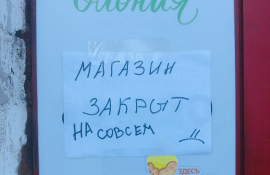 МАГАЗИН
ЗАКРЫТ
НА СОВСЕМ
ЗДЕСЬ